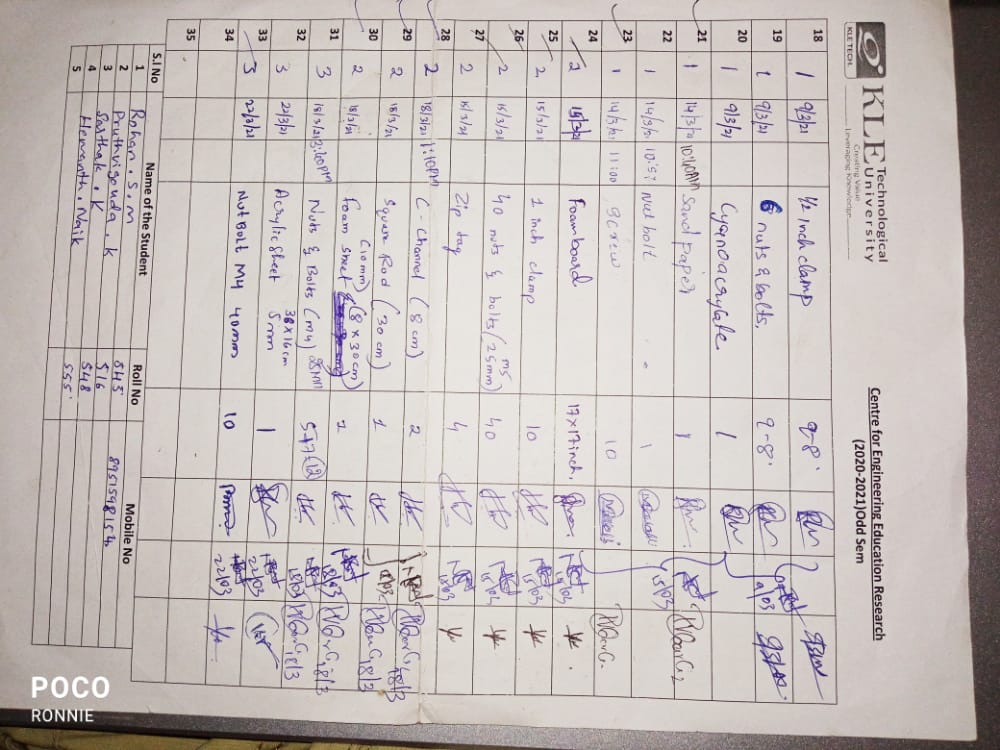 KLE TECH.
KLE Technological University
Creating Value
Leveraging Knowledge
Centre for Engineering Education Research
(2020-2021)Odd Sem
18 1 9/3/21 1/2 inch clamp 9-8
19 1 9/3/21 6 nuts & bolts. 9-8 9/03
20 1 9/3/21 Cyanoacrylate 1
21 1 14/3/21 10:40AM Sand paper 1 15/03
22 1 14/3/21 10:57 Nut bolt 1
23 1 14/3/21 11:00 screw 10
24 2 15/3/21 Foamboard 17x17inch. 15/03
25 2 15/3/21 1 inch clamp 10 15/03
26 2 15/3/21 40 nuts & bolts (M5 25mm) 40 15/03
27 2 15/3/21 Zip tag 4 15/03
28 2 18/3/21 1:10PM C-Channel (8 cm) 2 18/3
29 2 18/3/21 Square Rod (30 cm) 1 18/3
30 2 18/3/21 Foam sheet (10mm) (8 x 30cm) 18/03 18/3
31 3 18/3/21 3:40PM Nuts & Bolts (M4) 25MM 5+7 (12) 18/03 18/3
32 3 22/3/21 Acrylic Sheet 38x16cm 5mm 1 22/03
33 3 22/3/21 Nut Bolt M4 40mm 10 22/03
34
35
S.I No Name of the Student Roll No Mobile No
1 Rohan . S . M 545 8951598154
2 Pruthvigouda . K 516
3 Sarthak . K 548
4 Hemanth . Naik 555
5
POCO
RONNIE